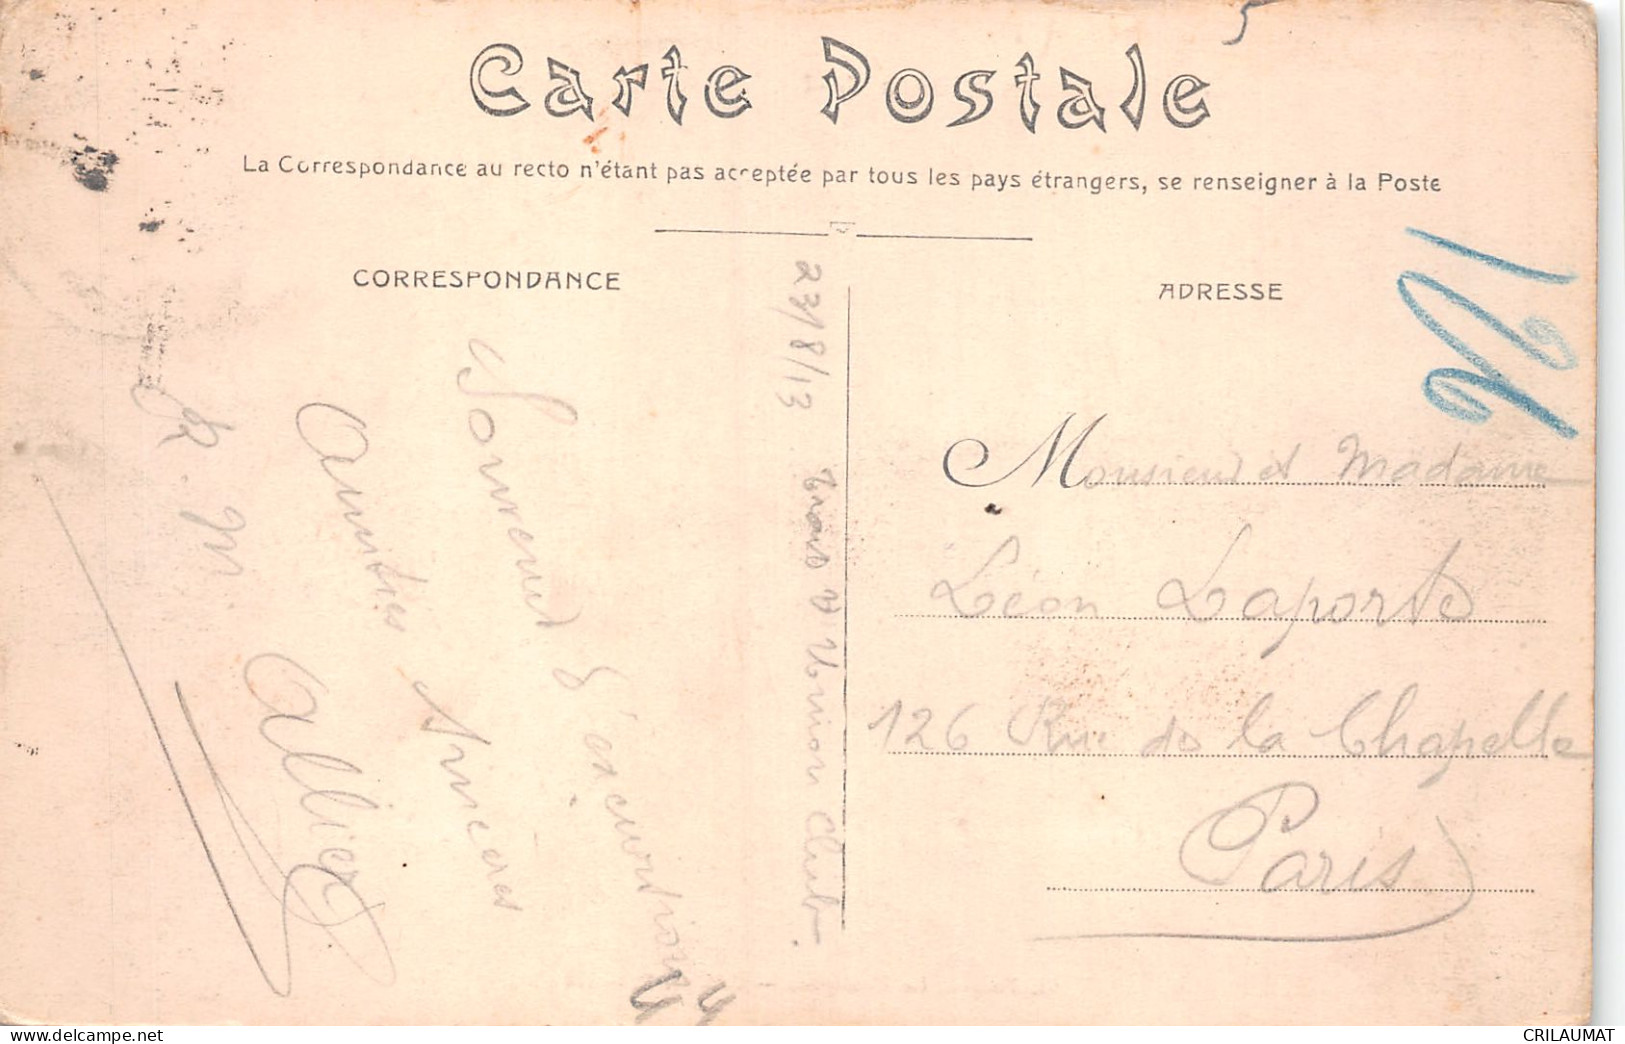 5
Carte Postale
La Correspondance au recto n'étant pas acceptée par tous les pays étrangers, se renseigner à la Poste
CORRESPONDANCE
ADRESSE
23/8/13
Souvenir d'excursion
Amitiés sincères
Monsieur et Madame
Léon Laporte
126 Rue de la Chapelle
Paris
126
CRILAUMAT